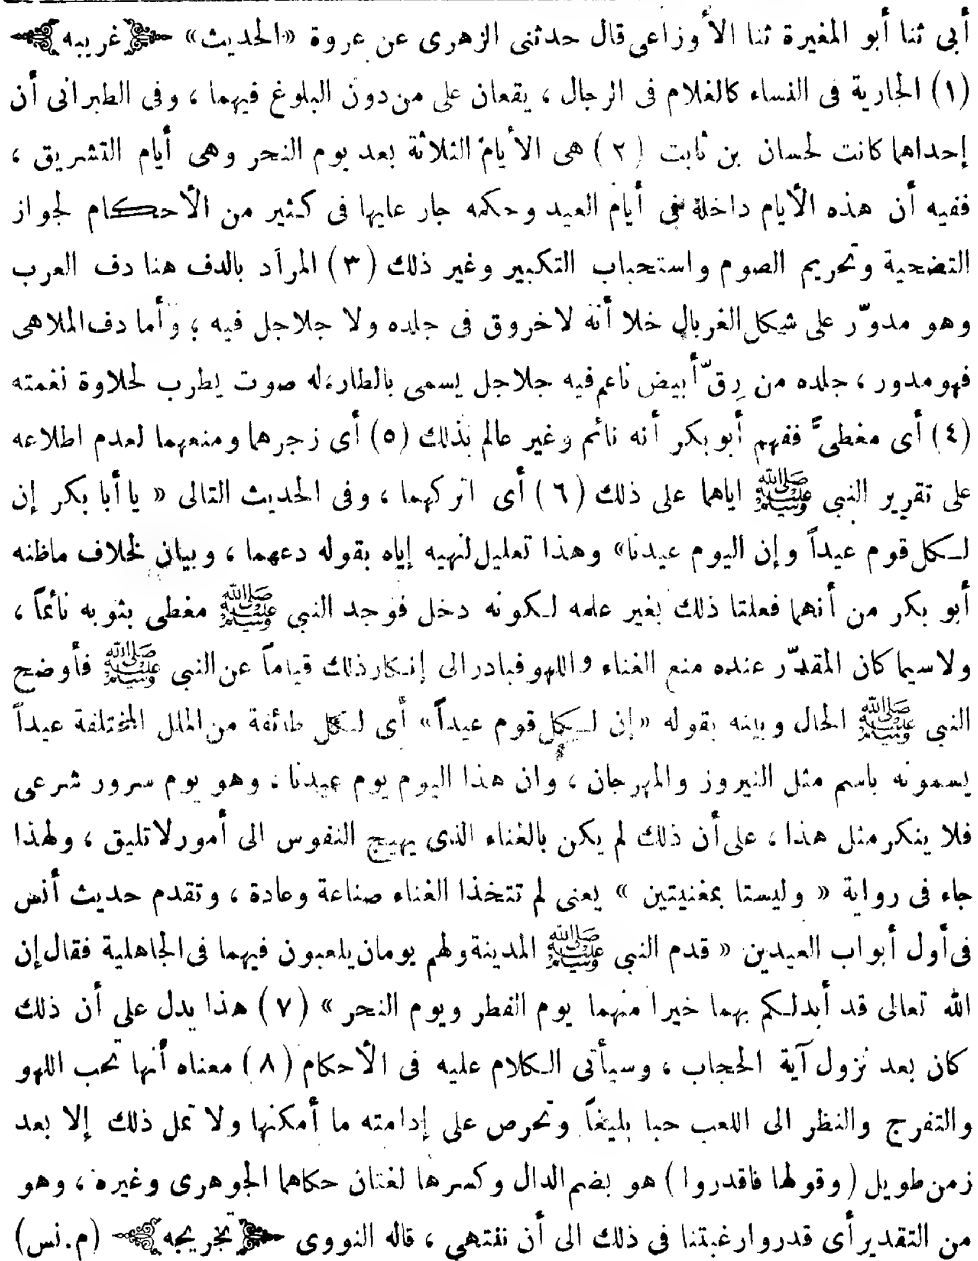 أبى ثنا أبو المغيرة ثنا الأوزاعى قال حدثنى الزهرى عن عروة «الحديث» غريبه
(١) الجارية فى النساء كالغلام فى الرجال ، يقعان على من دون البلوغ فيهما ، وفى الطبرانى أن
إحداهما كانت لحسان بن ثابت (٢) هى الأيام الثلاثة بعد يوم النحر وهى أيام التشريق ،
ففيه أن هذه الأيام داخلة فى أيام العيد وحكمه جار عليها فى كثير من الأحكام لجواز
التضحية وتحريم الصوم واستحباب التكبير وغير ذلك (٣) المراد بالدف هنا دف العرب
وهو مدوّر على شكل الغربال خلا أنه لاخروق فى جلده ولا جلاجل فيه ؛ وأما دف الملاهى
فهو مدور ، جلده من رقّ أبيض ناعم فيه جلاجل يسمى بالطار، له صوت يطرب لحلاوة نغمته
(٤) أى مغطىً ففهم أبو بكر أنه نائم وغير عالم بذلك (٥) أى زجرها ومنعهما لعدم اطلاعه
على تقرير النبى ﷺ اياهما على ذلك (٦) أى اتركهما ، وفى الحديث التالى « يا أبا بكر إن
لكل قوم عيداً وإن اليوم عيدنا» وهذا تعليل لنهيه إياه بقوله دعهما ، وبيان لخلاف ماظنه
أبو بكر من أنهما فعلتا ذلك بغير علمه لكونه دخل فوجد النبى ﷺ مغطى بثوبه نائماً ،
ولاسيما كان المقدّر عنده منع الغناء واللهو فبادر الى إنكار ذلك قياماً عن النبى ﷺ فأوضح
النبى ﷺ الحال وبينه بقوله «إن لكل قوم عيداً» أى لكل طائفة من الملل المختلفة عيداً
يسمونه باسم مثل النيروز والمهرجان ، وان هذا اليوم يوم عيدنا . وهو يوم سرور شرعى
فلا ينكر مثل هذا ، على أن ذلك لم يكن بالغناء الذى يهيج النفوس الى أمور لاتليق ، ولهذا
جاء فى رواية « وليستا بمغنيتين » يعنى لم تتخذا الغناء صناعة وعادة ، وتقدم حديث أنس
فى أول أبواب العيدين « قدم النبى ﷺ المدينة ولهم يومان يلعبون فيهما فى الجاهلية فقال إن
الله تعالى قد أبدلكم بهما خيرا منهما يوم الفطر ويوم النحر » (٧) هذا يدل على أن ذلك
كان بعد نزول آية الحجاب ، وسيأتى الكلام عليه فى الأحكام (٨) معناه أنها تحب اللهو
والتفرج والنظر الى اللعب حبا بليغاً وتحرص على إدامته ما أمكنها ولا تمل ذلك إلا بعد
زمن طويل (وقولها فاقدروا) هو بضم الدال وكسرها لغتان حكاهما الجوهرى وغيره ، وهو
من التقدير أى قدروا رغبتنا فى ذلك الى أن ننتهى ، قاله النووى تخريجه (م.نس)